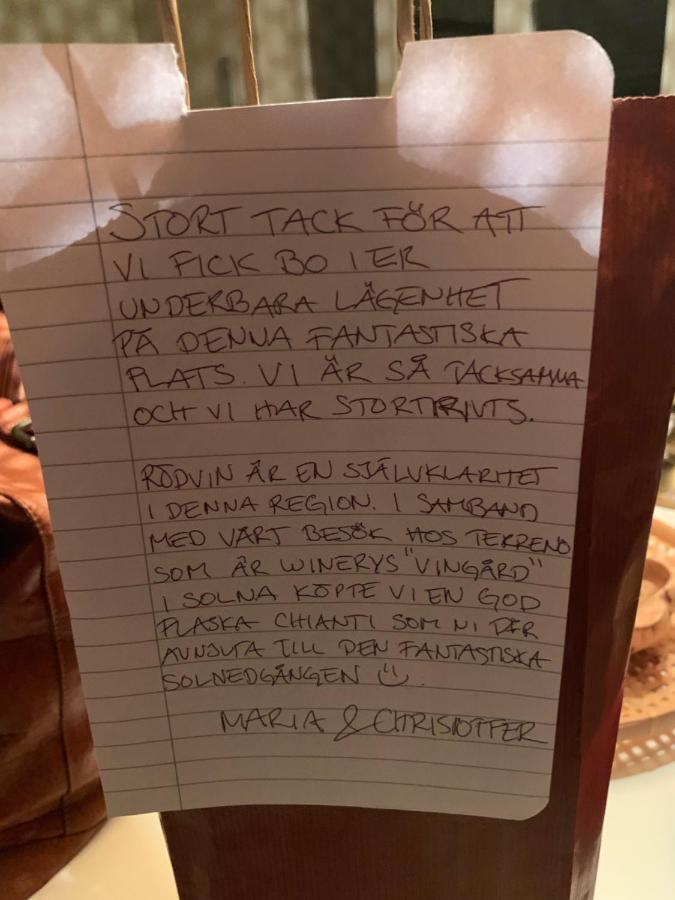 STORT TACK FÖR ATT
VI FICK BO I ER
UNDERBARA LÄGENHET
PÅ DENNA FANTASTISKA
PLATS. VI ÄR SÅ TACKSAMMA
OCH VI HAR STORTRIVTS.
RÖDVIN ÄR EN SJÄLVKLARITET
I DENNA REGION. I SAMBAND
MED VÅRT BESÖK HOS TERRENO
SOM ÄR WINERYS "VINGÅRD"
I SOLNA KÖPTE VI EN GOD
FLASKA CHIANTI SOM NI FÅR
AVNJUTA TILL DEN FANTASTISKA
SOLNEDGÅNGEN ☺.
MARIA & CHRISTOFFER